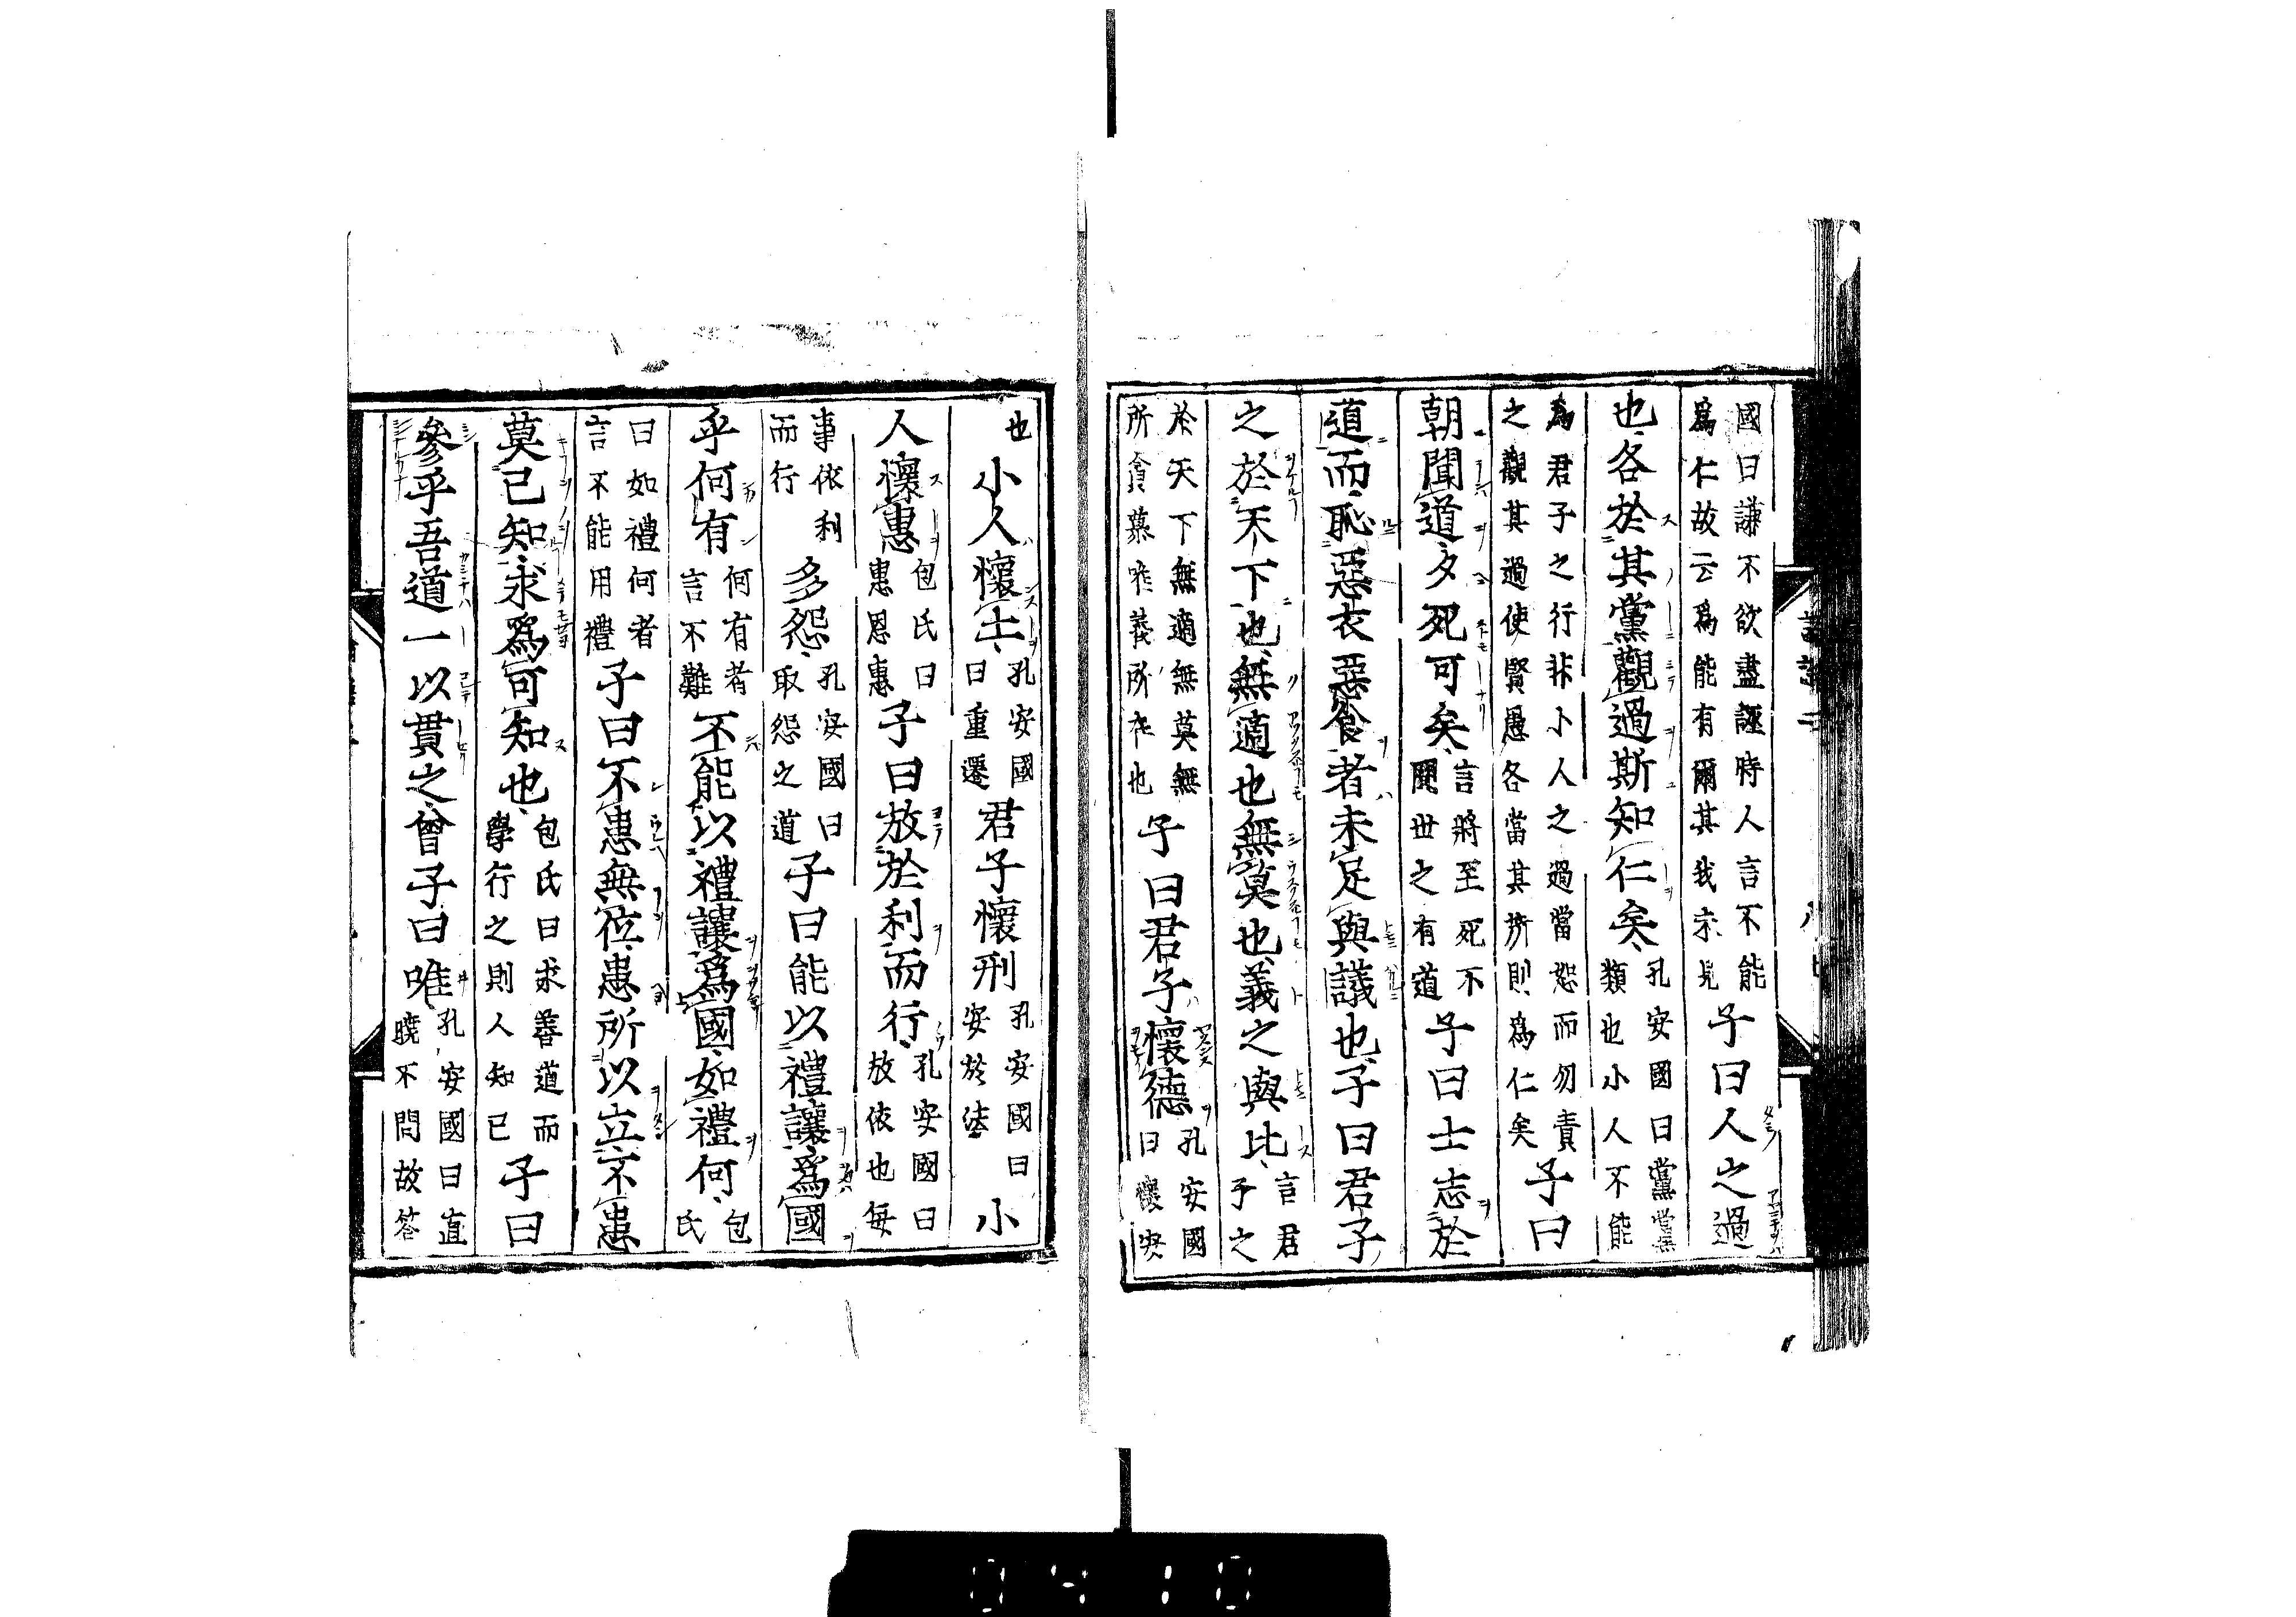 國曰謙不欲盡誣時人言不能
爲仁故云爲能有爾其我未見
子曰人之過
也各於其黨觀過斯知仁矣
孔安國曰黨黨
類也小人不能
爲君子之行非小人之過當恕而勿責
之觀其過使賢愚各當其所則爲仁矣
子曰
朝聞道夕死可矣
言將至死不
聞世之有道
子曰士志於
道而恥惡衣惡食者未足與議也子曰君子
之於天下也無適也無莫也義之與比
言君
子之
於天下無適無莫無
所貪慕唯義所在也
子曰君子懷德
孔安國
曰懷安
也
小人懷土
孔安國
曰重遷
君子懷刑
孔安國曰
安於法
小
人懷惠
包氏曰
惠恩惠
子曰放於利而行
孔安國曰
放依也每
事依利
而行
多怨
孔安國曰
取怨之道
子曰能以禮讓爲國
乎何有
何有者
言不難
不能以禮讓爲國如禮何
包
氏
曰如禮何者
言不能用禮
子曰不患無位患所以立不患
莫己知求爲可知也
包氏曰求善道而
學行之則人知己
子曰
參乎吾道一以貫之曾子曰唯
孔安國曰直
曉不問故答
0410